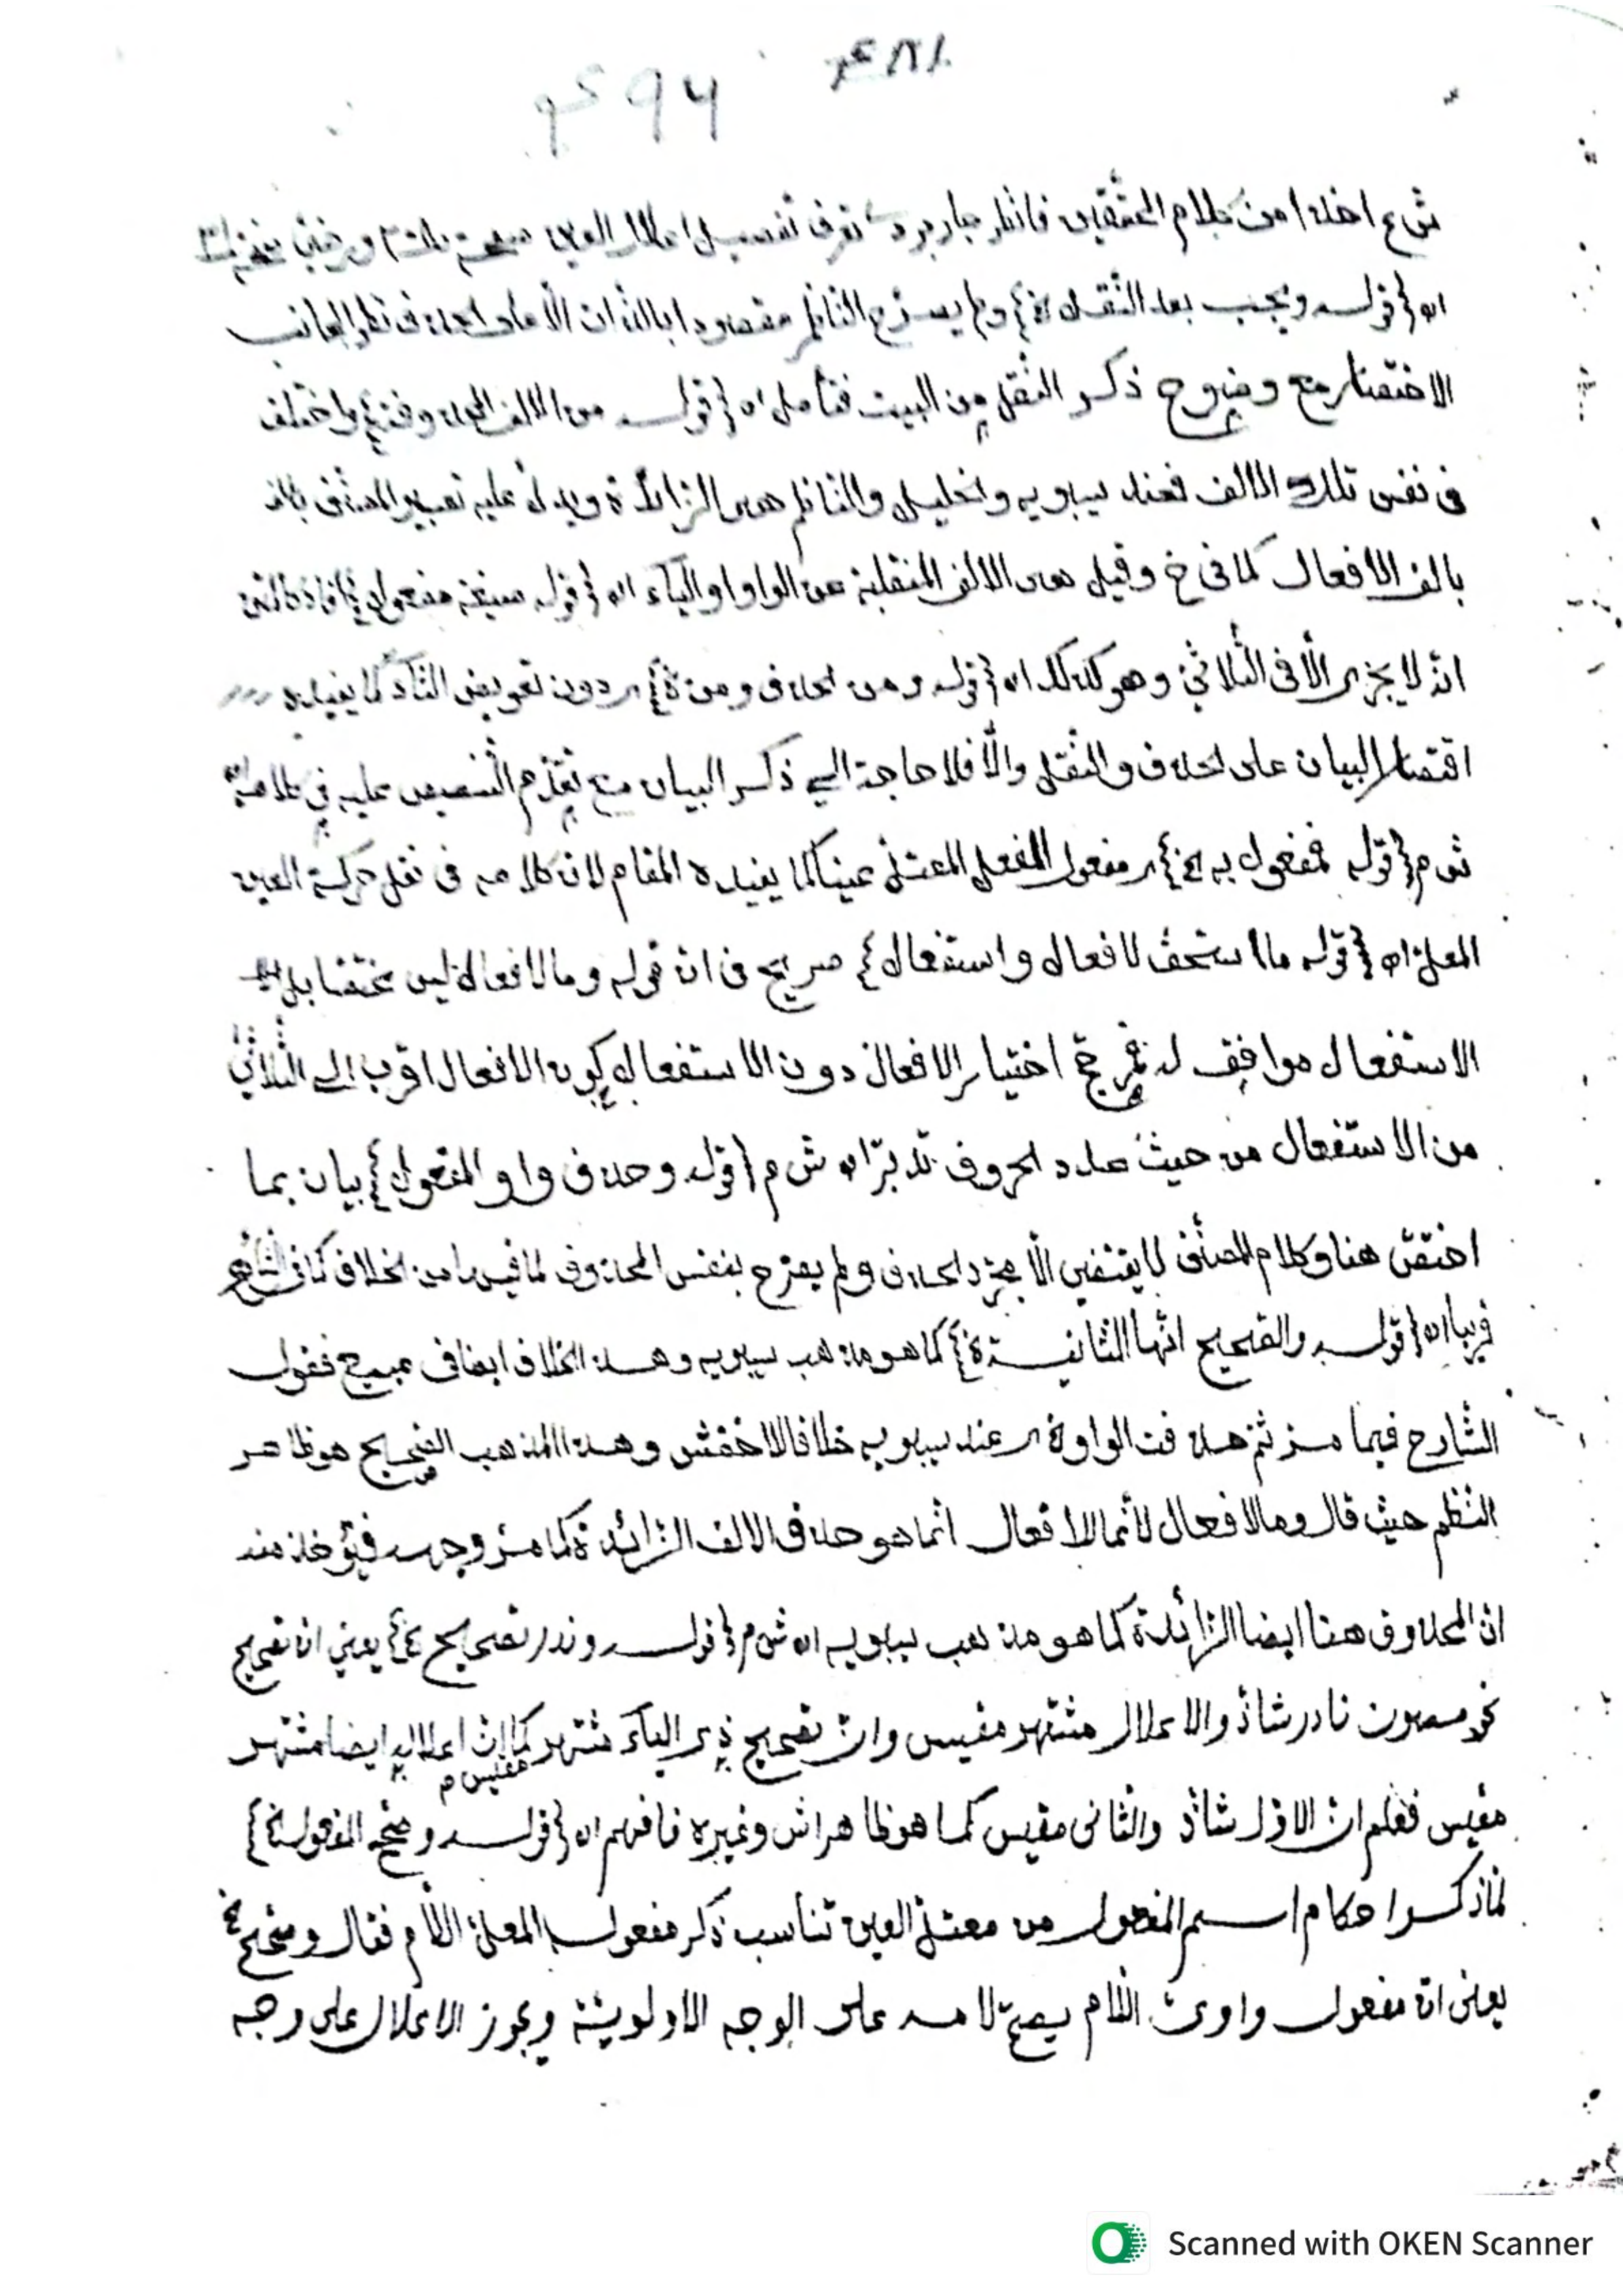 ٤٨١
٤٩٦
ش ع اخذا من كلام المحققين فانظر جاربردى تعرف تفصيل اعلال العين
اه {قوله ويجب بعد النقل اﻫ} ولم يصرح الناظم مقصودا بالذات الأعلى الحذف نظرا لجانب
الاختصار مع وضوح ذكر النقل من البيت فتأمل اه {قوله من الالف المحذوفة} واختلف
فى نفس تلك الالف فعند سيبويه والخليل والناظم هى الزائدة ويدل عليه تعبير المصنف
بالف الافعال كما فى خ وقيل هى الالف المنقلبة عن الواو او الياء اه {قوله صيغة مفعول}
انه لا يجرى الا فى الثلاثي وهو كذلك اه {قوله ومن الحذف ومن} دون تعويض التاء كما يفيده
اقتصار البيان على الحذف والنقل والا فلا حاجة الى ذكر البيان مع تقدم التنصيص عليه فى كلامه
ش م {قوله فمفعول به الخ} مفعول المفعل المعتل عينا كما يفيده المقام لان كلامه فى نقل حركة العين
المعل اه {قوله ما استحق لافعال واستفعال} صريح فى ان قوله وما لافعال ليس مختصا بل
الاستفعال موافق له غ ج اختيار الافعال دون الاستفعال لكون الافعال اقرب الى الثلاثي
من الاستفعال من حيث عدد الحروف تدبر اه ش م {قوله وحذف واو المفعول} بيان بما
اختص هنا وكلام المصنف لا يقتضى الا مجرد الحذف ولم يصرح بنفس المحذوف لما فيه من الخلاف كما فى الشارح
قريبا اه {قوله والصحيح انها الثانية} كما هو مذهب سيبويه وهذا الخلاف ايضا فى مبيع فقول
الشارح فيما مر ثم حذفت الواو عند سيبويه خلافا للاخفش وهذا المذهب الصحيح هو ظاهر
النظم حيث قال وما لافعال لأن ما لافعال انما هو حذف الالف الزائدة كما مر وجهه فيؤخذ منه
ان المحذوف هنا ايضا الزائدة كما هو مذهب سيبويه اه ش م {قوله وندر تصحيح} يعني ان تصحيح
نحو مصون نادر شاذ والاعلال مشتهر مقيس وان تصحيح ذى الياء مشتهر مقيس م كما ان اعلاله ايضا مشتهر
مقيس فعلم ان الاول شاذ والثانى مقيس كما هو ظاهر اش وغيره فافهم اه {قوله وصحح المفعول الخ}
لما ذكر احكام اسم المفعول من معتل العين تناسب ذكر مفعول المعل اللام فقال وصحح
يعنى ان مفعول واوى اللام يصح لامه على الوجه الاولوية ويجوز الاعلال على وجه
Scanned with OKEN Scanner